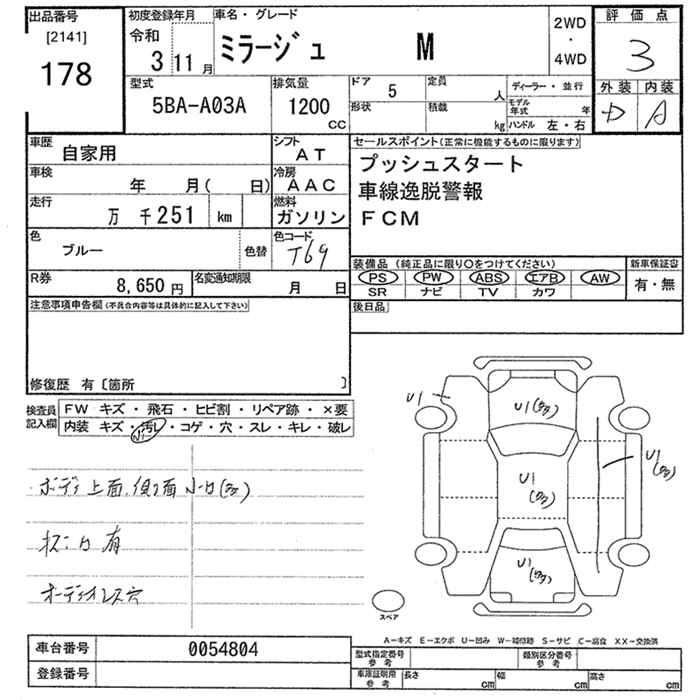 出品番号 初度登録年月 車名・グレード 評価点
[2141] 令和 2WD
178 3 11月 ミラージュ M ・ 3
4WD
型式 排気量 ドア 5 定員 人 ディーラー・並行 外装 内装
5BA-A03A 1200 cc 形状 積載 kg モデル年式 年 D A
ハンドル 左・右
車歴 自家用 シフト AT セールスポイント(正常に機能するものに限ります)
車検 年 月( 日) 冷房 AAC プッシュスタート
走行 万 千251 km 燃料 ガソリン 車線逸脱警報
FCM
色 ブルー 色替 色コード T69
装備品 (純正品に限り○をつけてください) 新車保証書
R券 8,650円 名変通知期限 月 日 PS PW ABS エアB AW 有・無
SR ナビ TV カワ
注意事項申告欄(不具合内容等は具体的に記入して下さい) 後日品
修復歴 有〔箇所 〕
検査員 FW キズ・飛石・ヒビ割・リペア跡・×要
記入欄 内装 キズ・汚レ・コゲ・穴・スレ・キレ・破レ
小
U1
U1(多)
U1(多)
U1(多)
U1(多)
ボディ上面、側面 小凹(多)
有
オーディオレス穴
スペア
A-キズ E-エクボ U-凹み W-補修跡 S-サビ C-腐食 XX-交換済
車台番号 0054804 型式指定番号 参考 類別区分番号 参考
登録番号 車庫証明用 参考 長さ cm 幅 cm 高さ cm